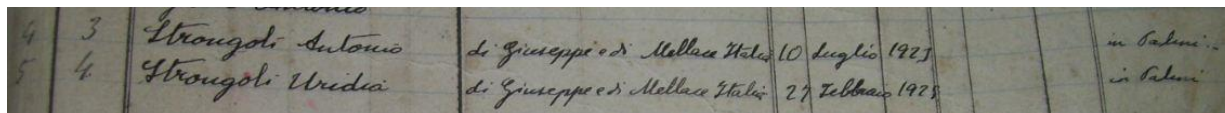 4 3 Strongoli Antonio di Giuseppe e di Mellace Italia 10 Luglio 1923 in Palmi
5 4 Strongoli Uridia di Giuseppe e di Mellace Italia 27 Febbraio 1925 in Palmi